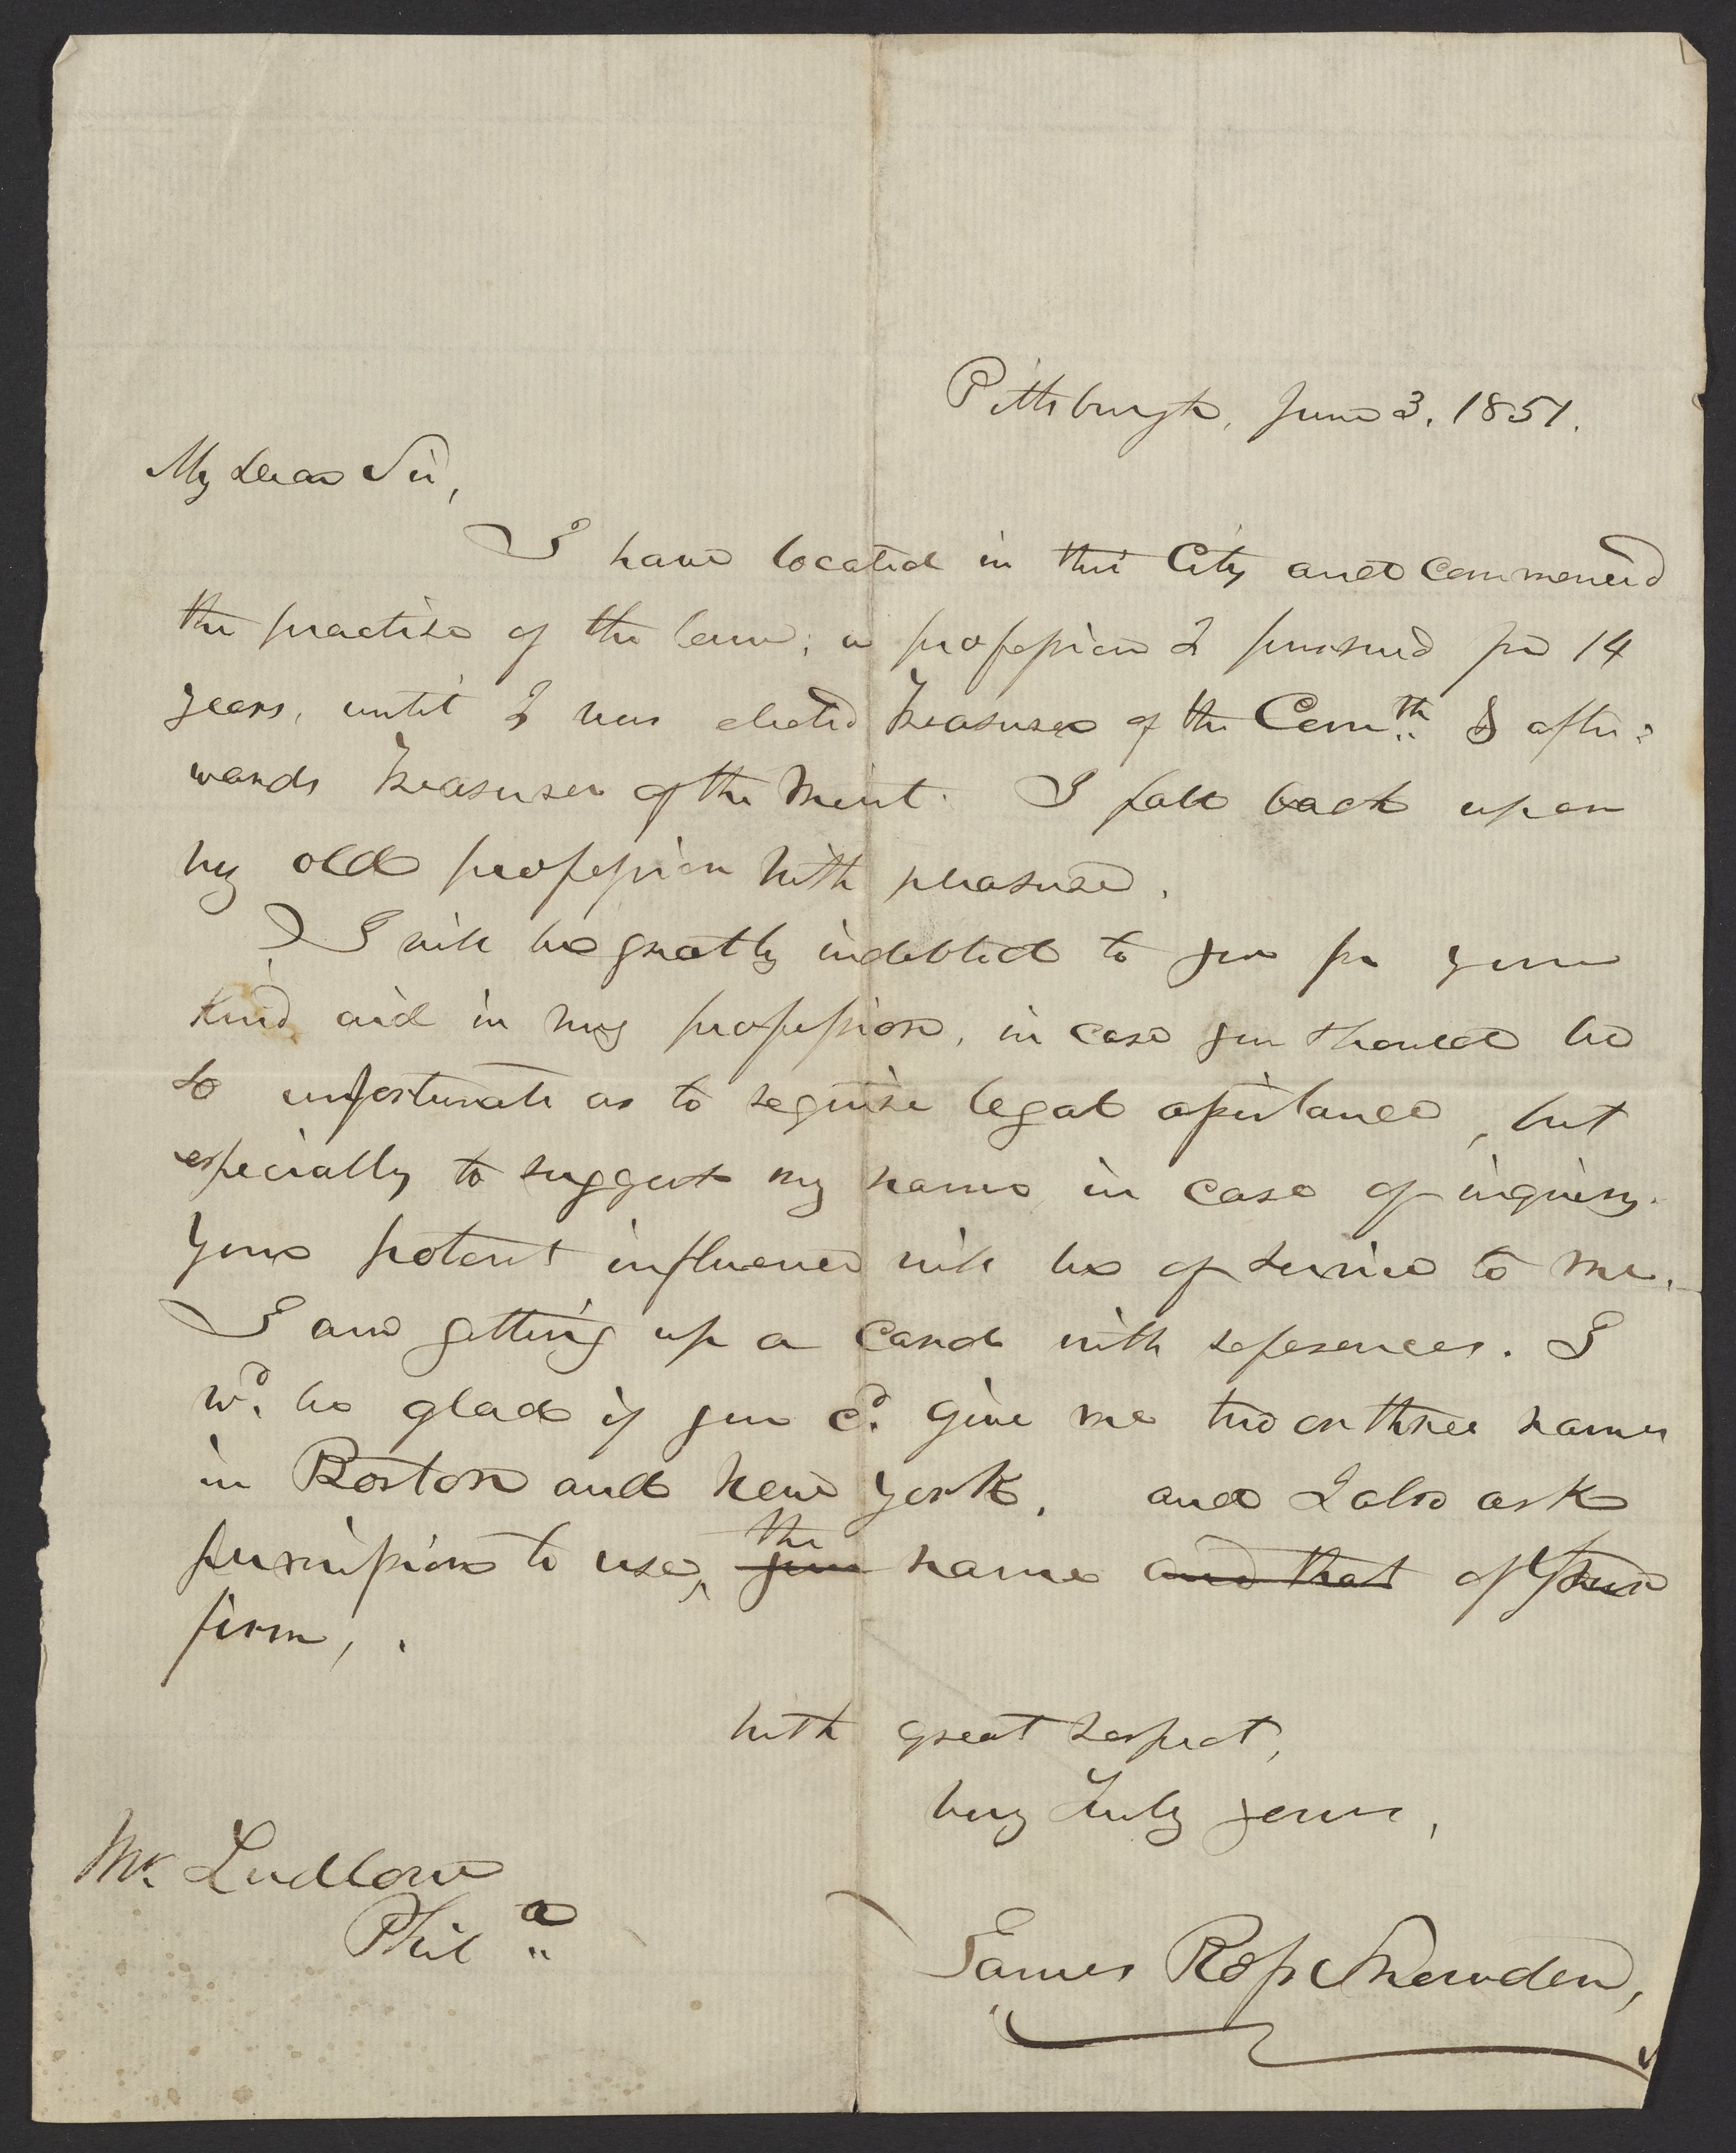 Pittsburgh, June 3. 1851.
My dear Sir,
I have located in this City and commenced
the practise of the law; a profession I pursued for 14
years, until I was elected Treasurer of the Comth. & after=
wards Treasurer of the Mint. I fall back upon
my old profession with pleasure.
I will be greatly indebted to you for your
kind aid in my profession, in case you should be
so unfortunate as to require legal assistance, but
especially to suggest my name in case of inquiry.
Your potent influence will be of service to me.
I am getting up a card with references. I
wd. be glad if you cd. give me two or three names
in Boston and New York. and I also ask
the
permission to use, your name and that of your
firm,.
With great respect,
Very truly yours,
Mr. Ludlow
Phila.
James Ross Snowden,